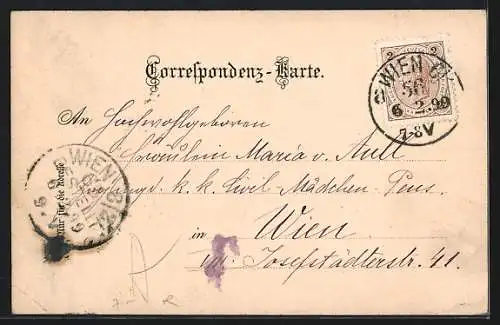 Correspondenz-Karte.
2 2
WIEN
56
6 2.99
7-8V
An Hochwohlgeboren
Fräulein Maria v.
k. k. Civil-Mädchen-Pens.
in Wien
Josefstädterstr. 41.
WIEN
für die Adresse